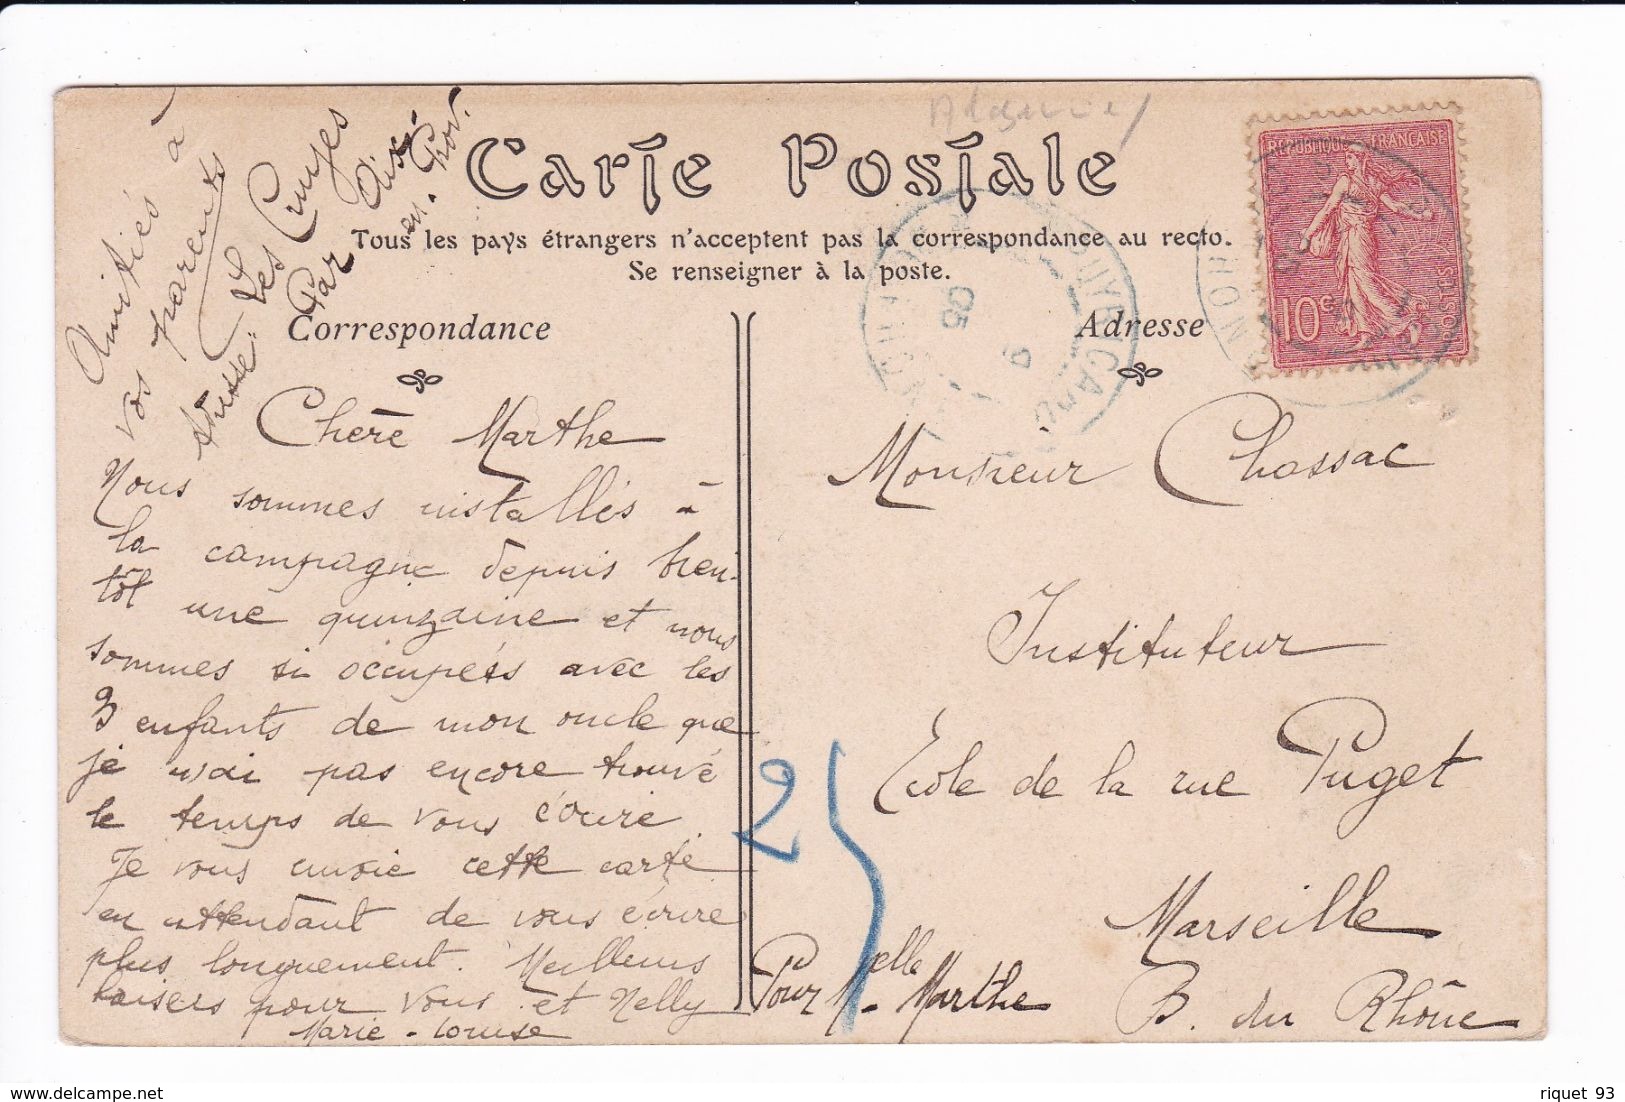 Carte Postale
Tous les pays étrangers n'acceptent pas la correspondance au recto.
Se renseigner à la poste.
Correspondance
Adresse
REPUBLIQUE FRANÇAISE
10c
POSTES
05
Amitiés à
vos parents
Adresse: Les Cruyes
Par Aix-
en-Prov.
Chère Marthe
Nous sommes installés à
la campagne depuis bien-
tôt une quinzaine et nous
sommes si occupées avec les
3 enfants de mon oncle que
je n'ai pas encore trouvé
le temps de vous écrire
Je vous envoie cette carte
en attendant de vous écrire
plus longuement. Meilleurs
baisers pour vous et Nelly
Marie-Louise
25
Monsieur Chassac
Instituteur
Ecole de la rue Puget
Marseille
B. du Rhône
Pour Melle Marthe
delcampe.net
riquet 93